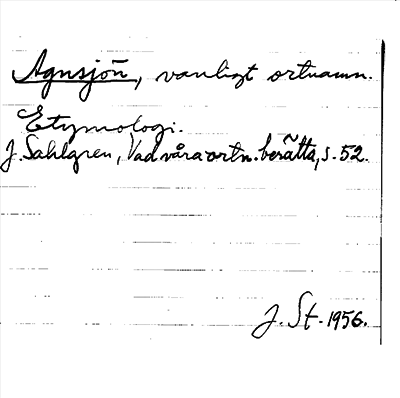 Agnsjön, vanligt ortnamn.
Etymologi.
J. Sahlgren, Vad våra ortn. berätta, s. 52.
J. St. 1956.